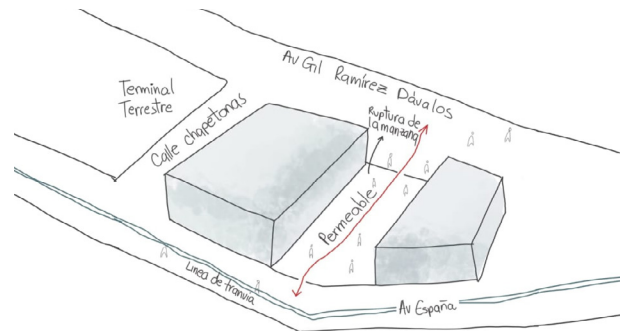 Av Gil Ramírez Dávalos
Terminal
Terrestre
Calle chapetonas
Ruptura de
la manzana
Permeable
Linea de tranvia
Av España